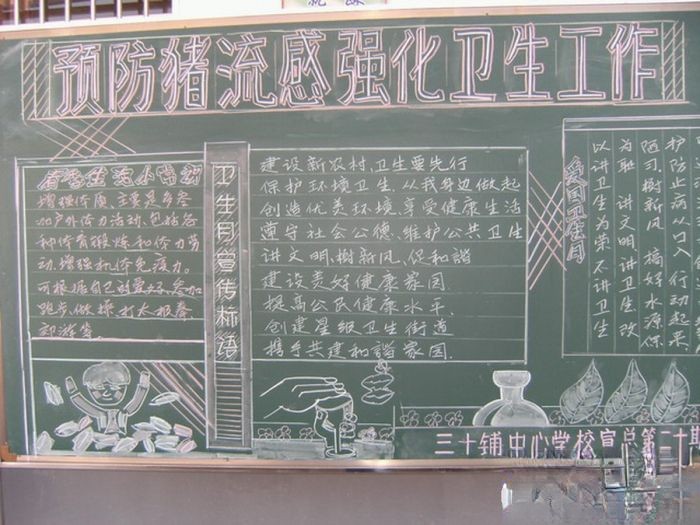 预防猪流感强化卫生工作
春季生活小常识
增强体质,主要是多参
加户外体力活动,包括各
种体育锻炼和体力劳
动,增强机体免疫力。
可根据自己的爱好,参加
跑步,做操,打太极拳
郊游等.
卫生月宣传标语
建设新农村,卫生要先行
保护环境卫生,从我身边做起
创造优美环境,享受健康生活
遵守社会公德、维护公共卫生
讲文明,树新风,保和谐
建设美好健康家园.
提高公民健康水平.
创建星级卫生街道
携手共建和谐家园.
爱国卫生月
护防止病从口入 行动起来
陋习.树新风 搞好水源保
为耻 讲文明讲卫生改
以讲卫生为荣不讲卫生
三十铺中心学校宣总第二十期